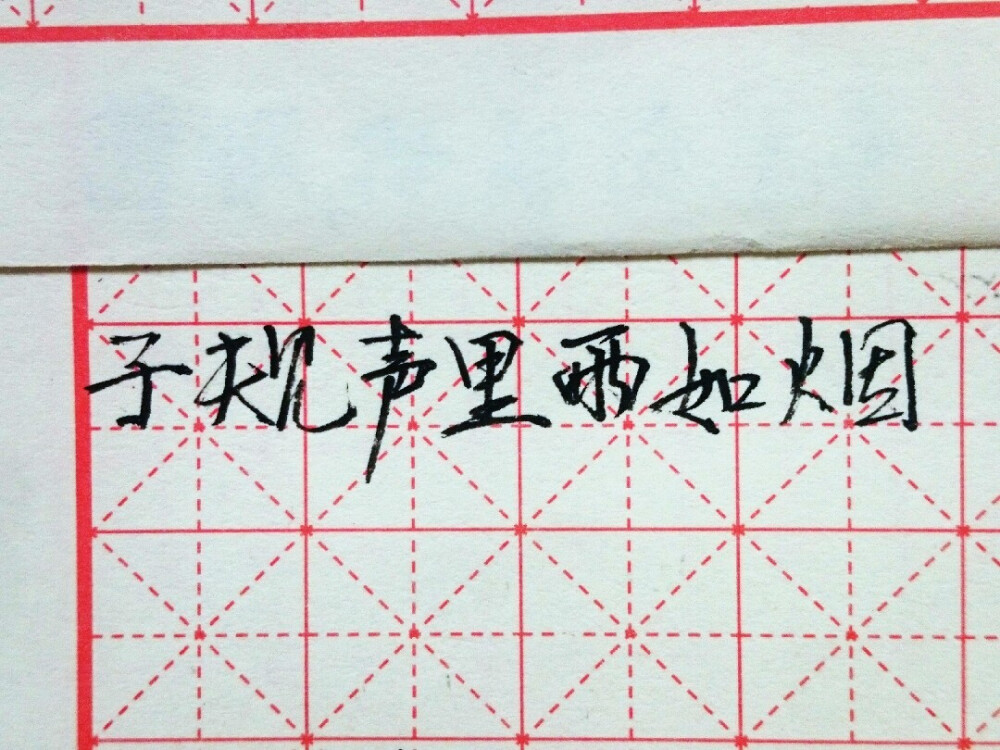 子规声里雨如烟